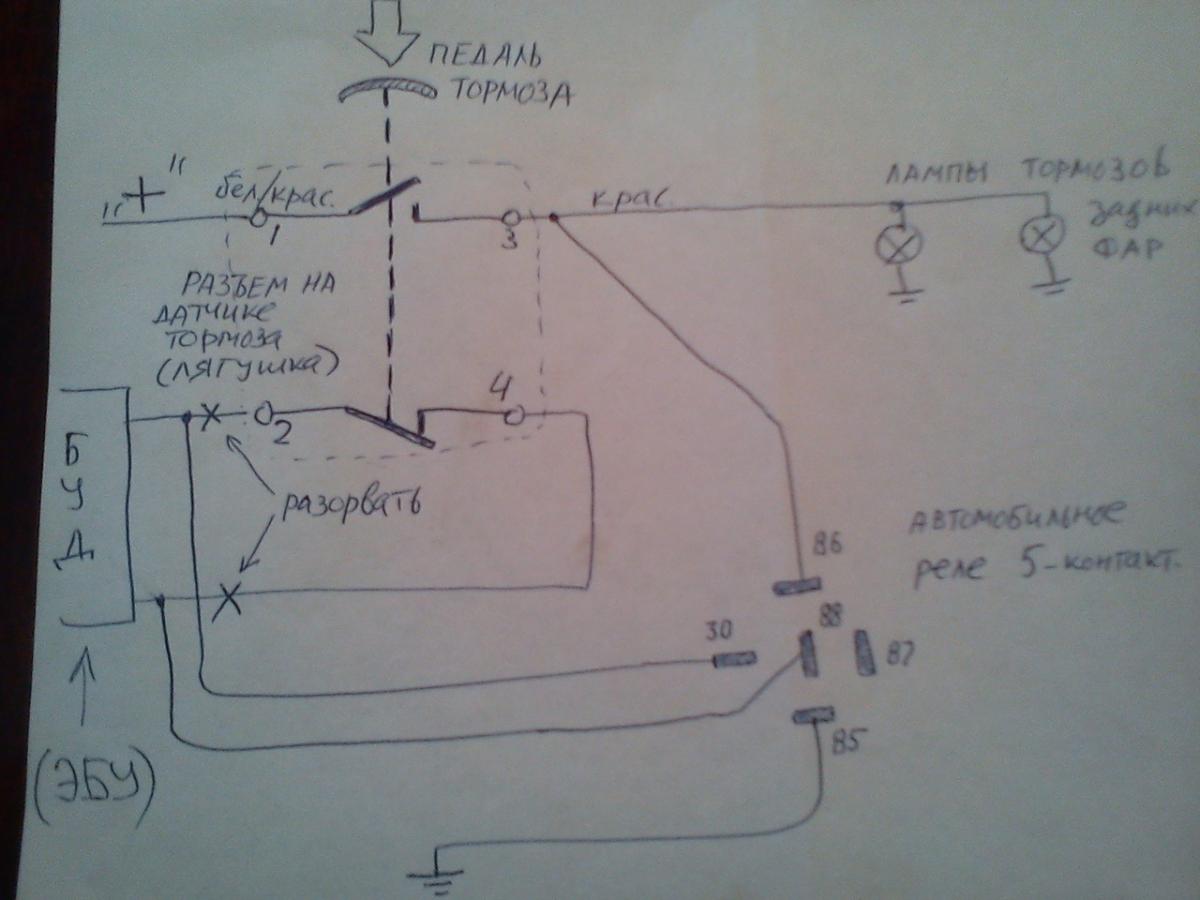 ПЕДАЛЬ
ТОРМОЗА
"+"
бел/крас.
1
3
крас.
ЛАМПЫ ТОРМОЗОВ
задних
ФАР
РАЗЪЕМ НА
ДАТЧИКЕ
ТОРМОЗА
(ЛЯГУШКА)
2
4
БУД
разорвать
АВТОМОБИЛЬНОЕ
реле 5-контакт.
86
30
88
87
85
(ЭБУ)